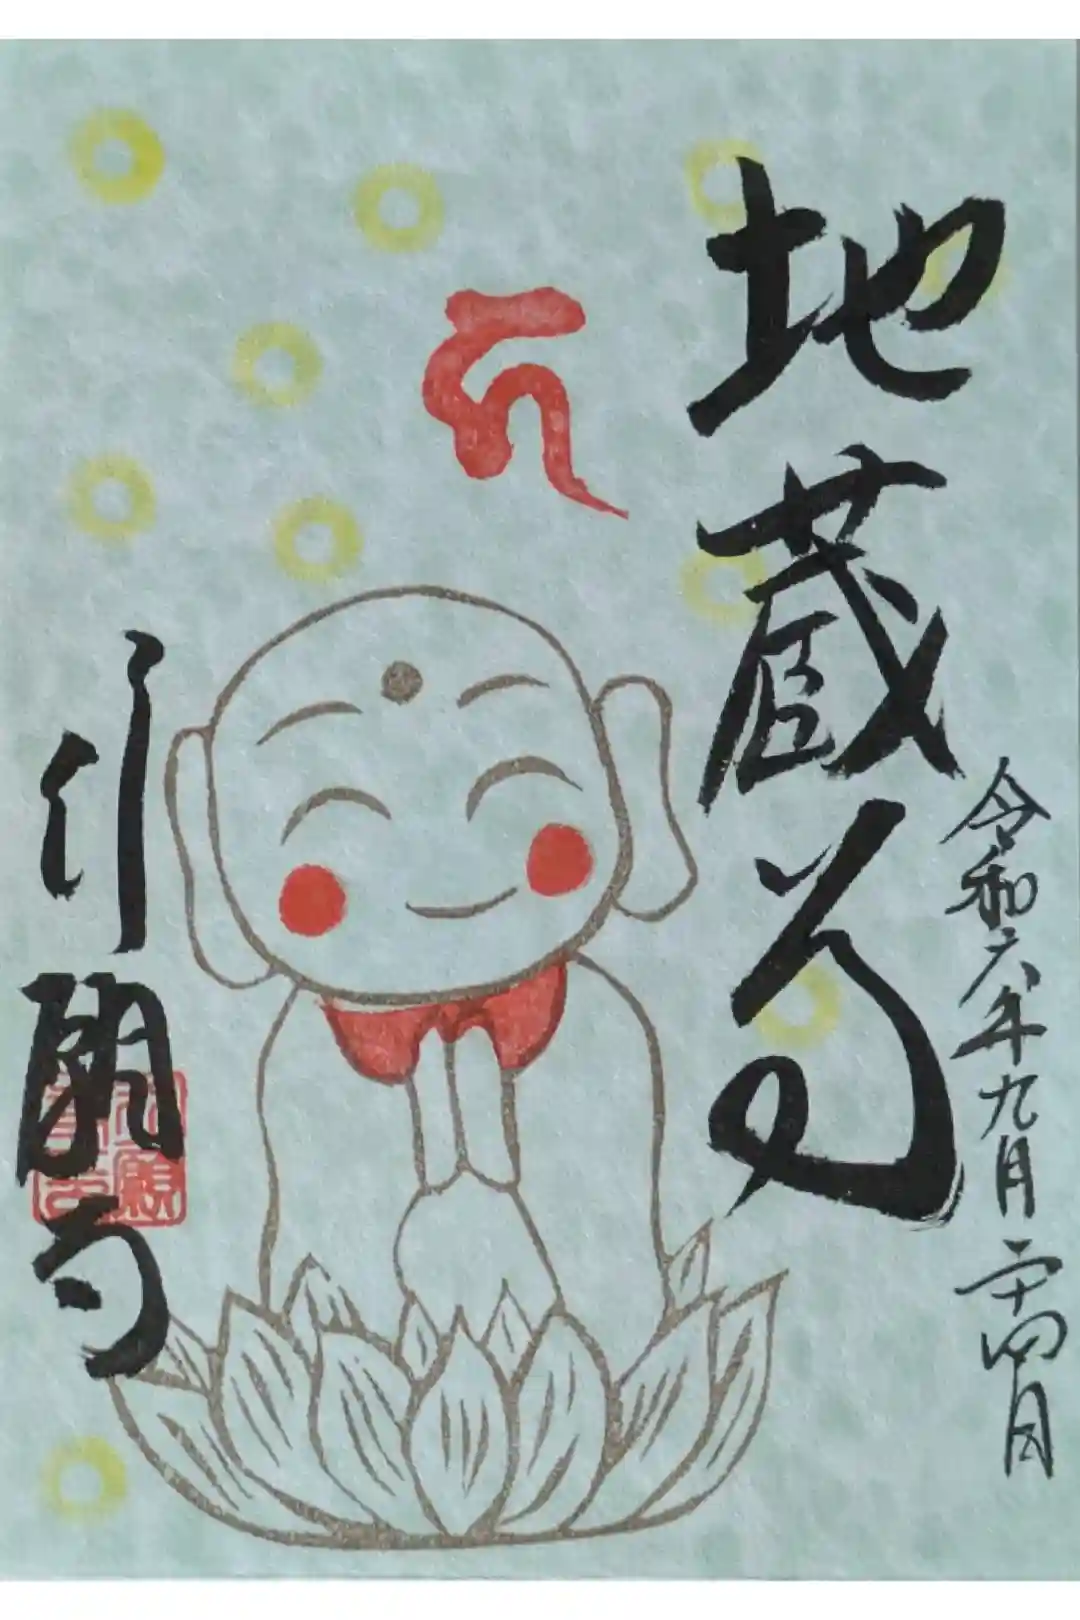 地蔵尊
令和六年九月二十四日
行願寺